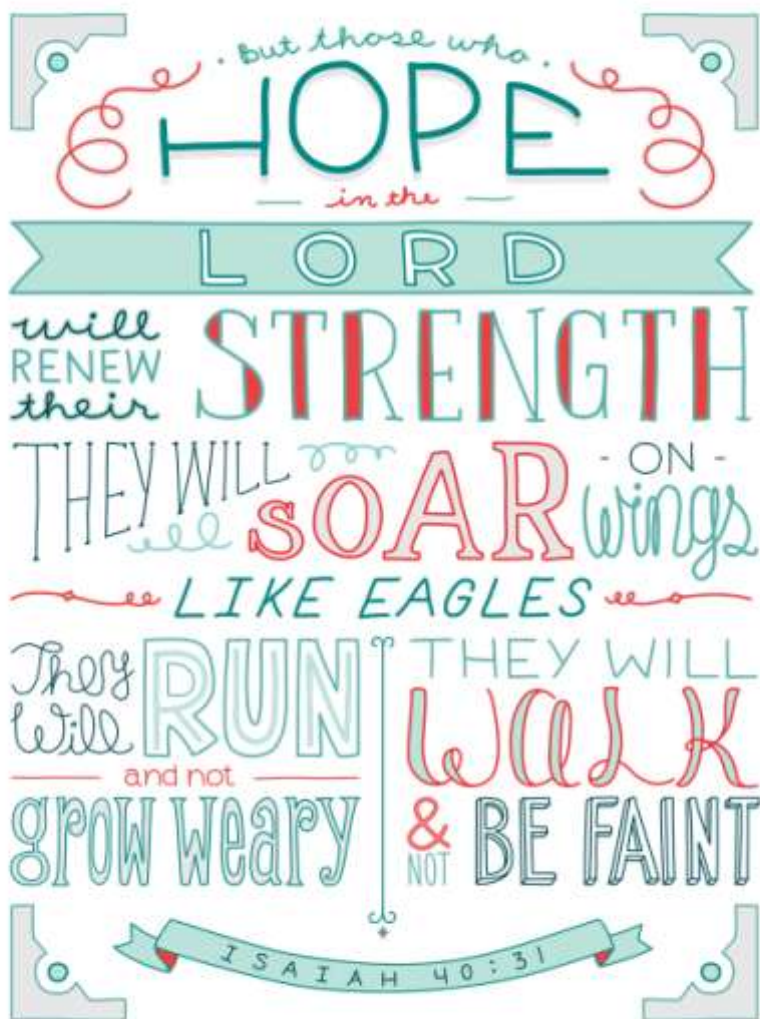 But those who
HOPE
in the
LORD
will
RENEW
their
STRENGTH
THEY WILL
SOAR
- ON -
wings
LIKE EAGLES
They
Will
RUN
and not
grow weary
THEY WILL
WALK
&
NOT
BE FAINT
ISAIAH 40:31